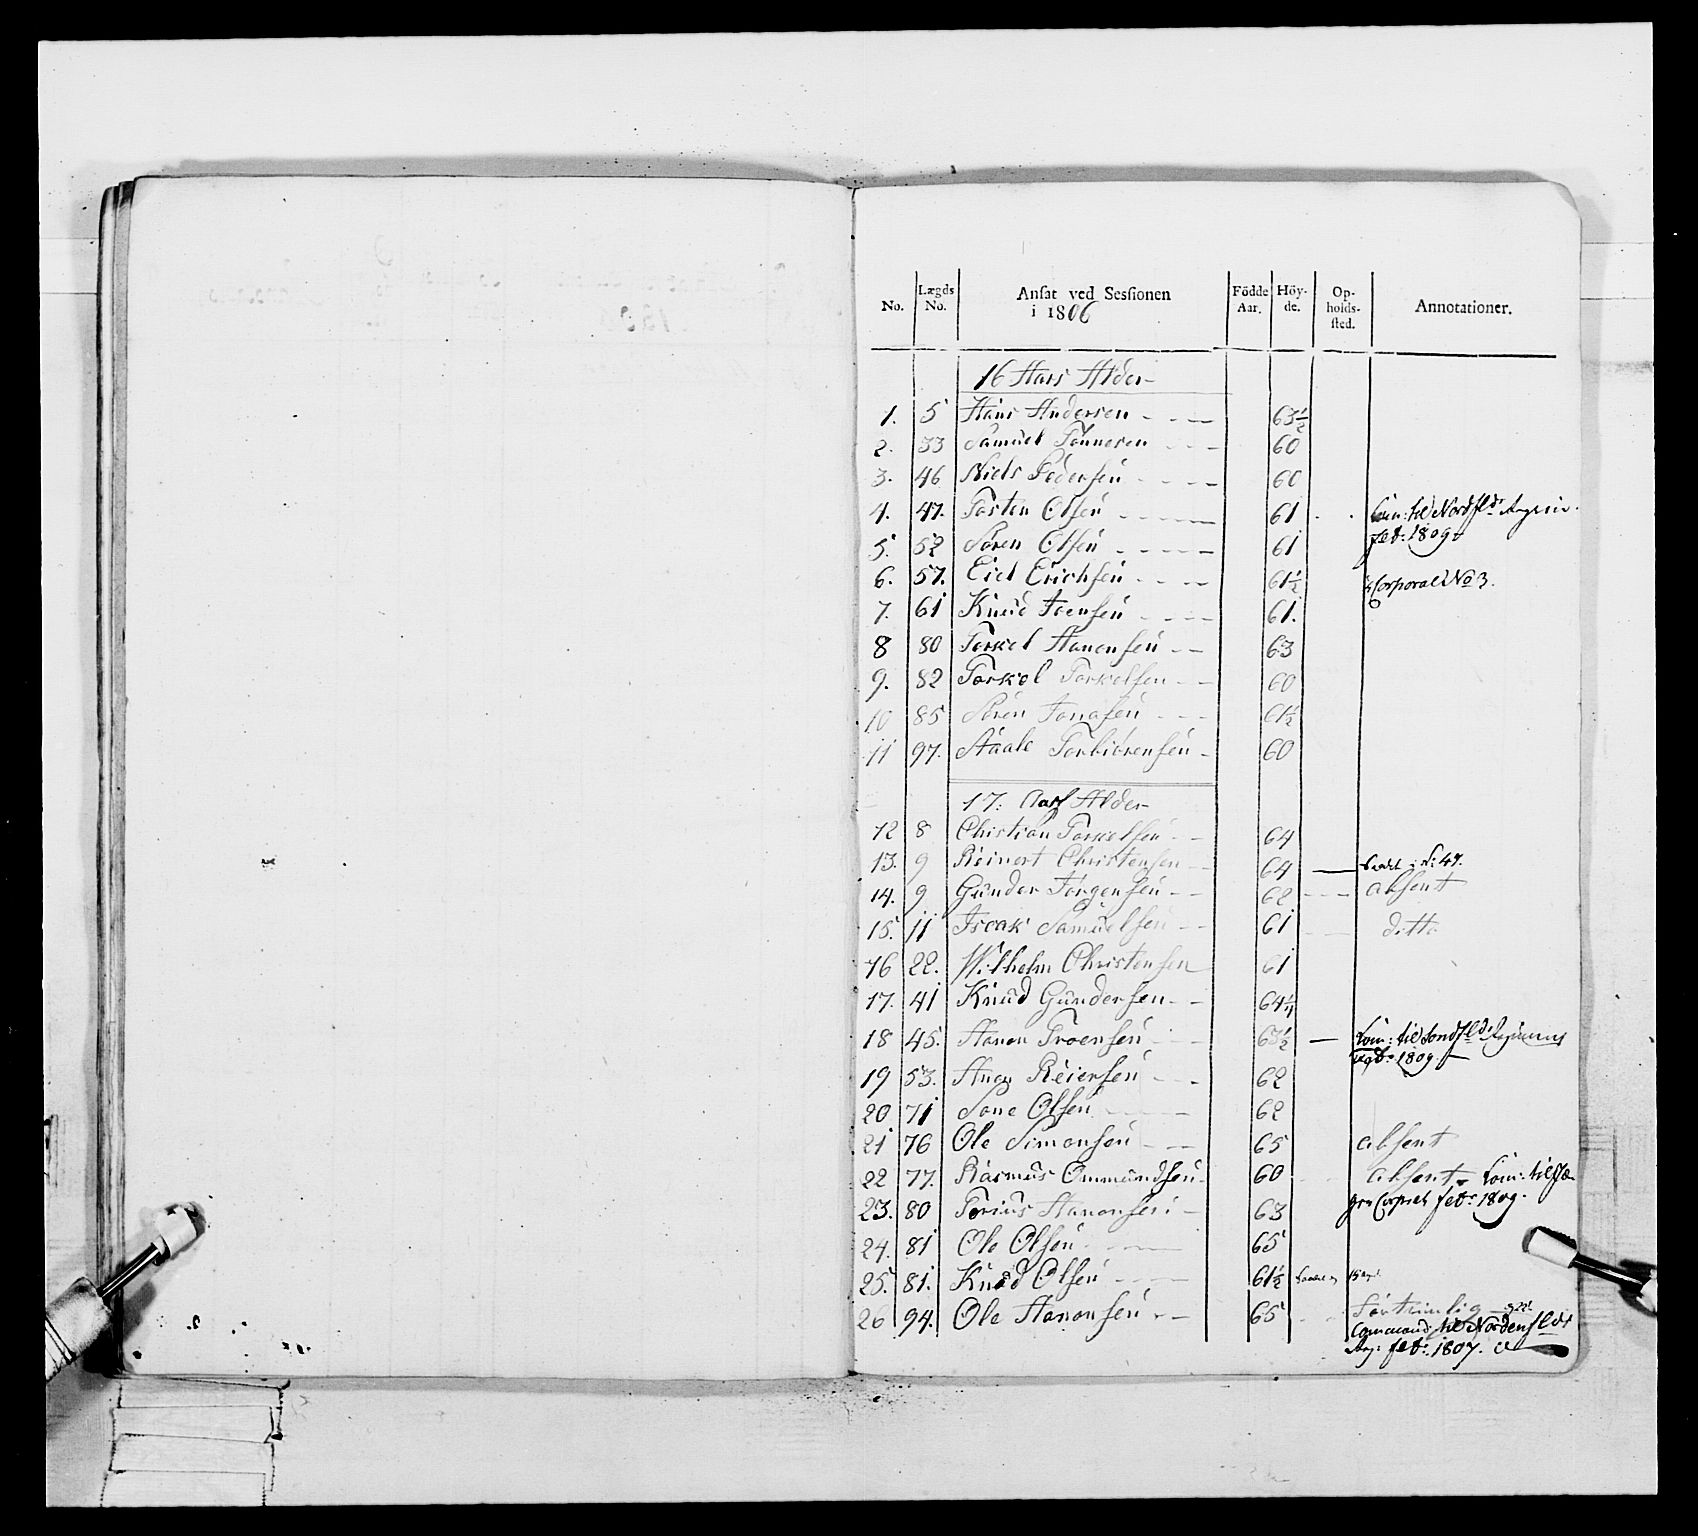 No. Lægds No. Ansat ved Sessionen i 1806 Födde Aar. Höy-de. Op-holds-sted. Annotationer.
16 Aars Alder
1. 5 Hans Andersen - - - 63½
2. 33 Samuel Tönnesen - - - 60
3. 46 Niels Pedersen - - - 60
4. 47. Torsten Olsen - - - 61 Kom: til Nordfld:
febr: 1809
5. 52 Sören Olsen - - - 61
6. 57. Eiel Erichsen - - - 61½ Corporal No 3.
7. 61 Knud Joensen - - - 61.
8 80 Torkel Hanonsen - - 63
9. 82 Torkel Torkelsen - - 60
10 85 Sören Jonasen - - - 61½
11 97. Aaale Torbiörensen - 60
17: Aars Alder
12 8 Christian Torkelsen - - 64
13. 9 Reinert Christensen - - 64 47.
14. 9 Gunder Jörgensen - - 62 - - - absent
15. 11 Isaak Samuelsen - - 61 - - ditto
16 22. Wilhelm Christensen 61
17. 41 Knud Gundersen - - 64¼
18 45. Hanon Troensen - - - 63½ Kom: til Söndfld: Regiment
1809.
19 53. Anon Reiersen - - - 62
20 71 Sone Olsen - - - 62
21 76 Ole Simonsen - - - 65 absent
22 77. Rasmus Ommundsen - 60 absent - Kom: til Jæ-
ger Corpset febr: 1809.
23. 80 Torius Hanonsen - 63
24. 81 Ole Olsen - - - 65
25. 81. Knud Olsen - - - 61½
26 94. Ole Hanonsen - - 65
Command: til Nordenfldske
Reg: febr: 1807.